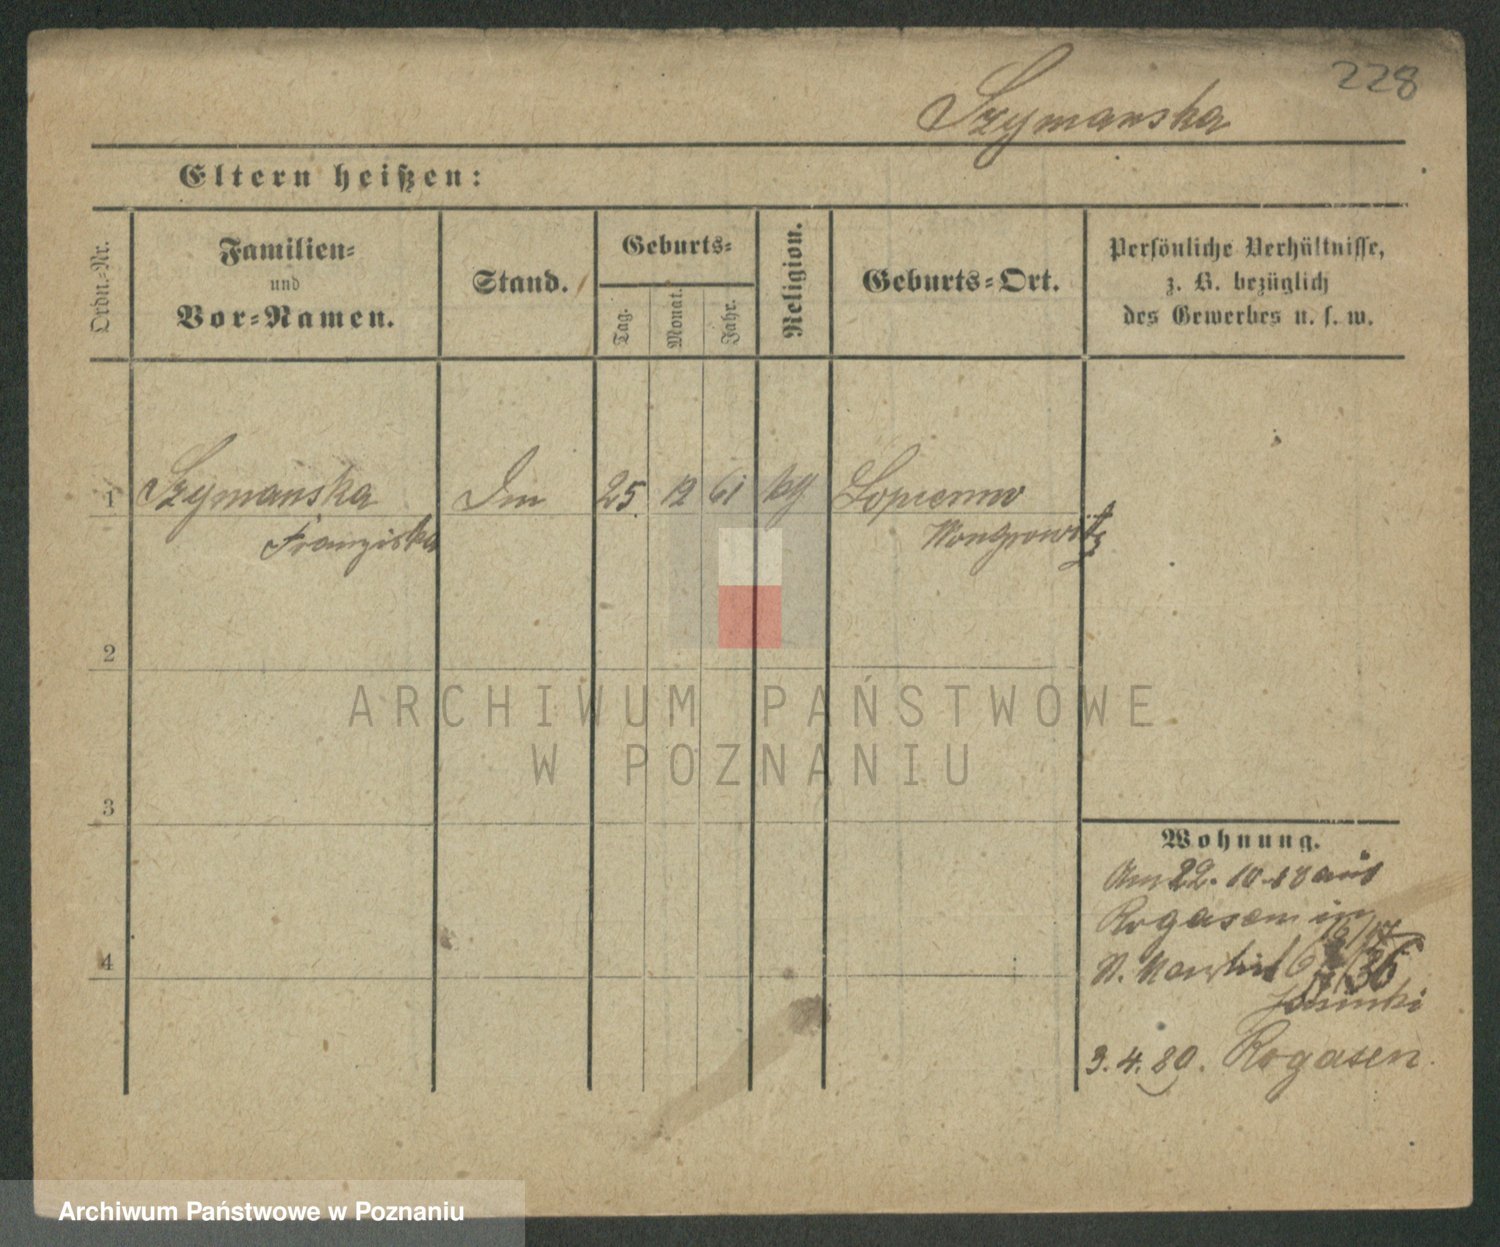 228
Szymanska
Eltern heißen:
Ordn.-Nr.
Familien-
und
Vor-Namen.
Stand.
Geburts-
Tag.
Monat.
Jahr.
Religion.
Geburts-Ort.
Persönliche Verhältnisse,
z. B. bezüglich
des Gewerbes u. s. w.
1 Szymanska 25 12 61 kg Lopienno
Franziska Wongrowitz
2
ARCHIWUM PAŃSTWOWE
W POZNANIU
3
Wohnung.
Am 22. 10. aus
Rogasen in
4
3. 4. 80. Rogasen
Archiwum Państwowe w Poznaniu